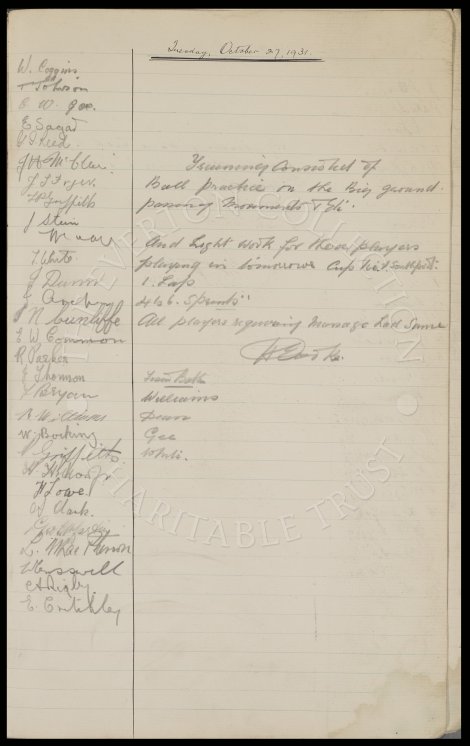 Tuesday, October 27, 1931.
W. Coggins
T Johnson
C. W. Gee.
E Sagar
G S Reed.
J H McClure.
J L Fryer.
P Griffiths
J Stein
T. White.
J Dunn
J N Cunliffe
E W Common
R Parker
J Thomson
Bryan
R Williams
W. Bocking
Griffiths
H Lowe
G Clark.
L. MacPherson
C A Rigby.
E Critchley
Training Consisted of
Ball practice on the Big ground.
passing Movements & Etc.
And Light work for these players
playing in tomorrows Cup
1. Laps
4 & 6. Sprints"
All players requiring Massage Had Same
H E Cooke.
Williams
Dean
Gee
White.
EVERTON COLLECTION
CHARITABLE TRUST